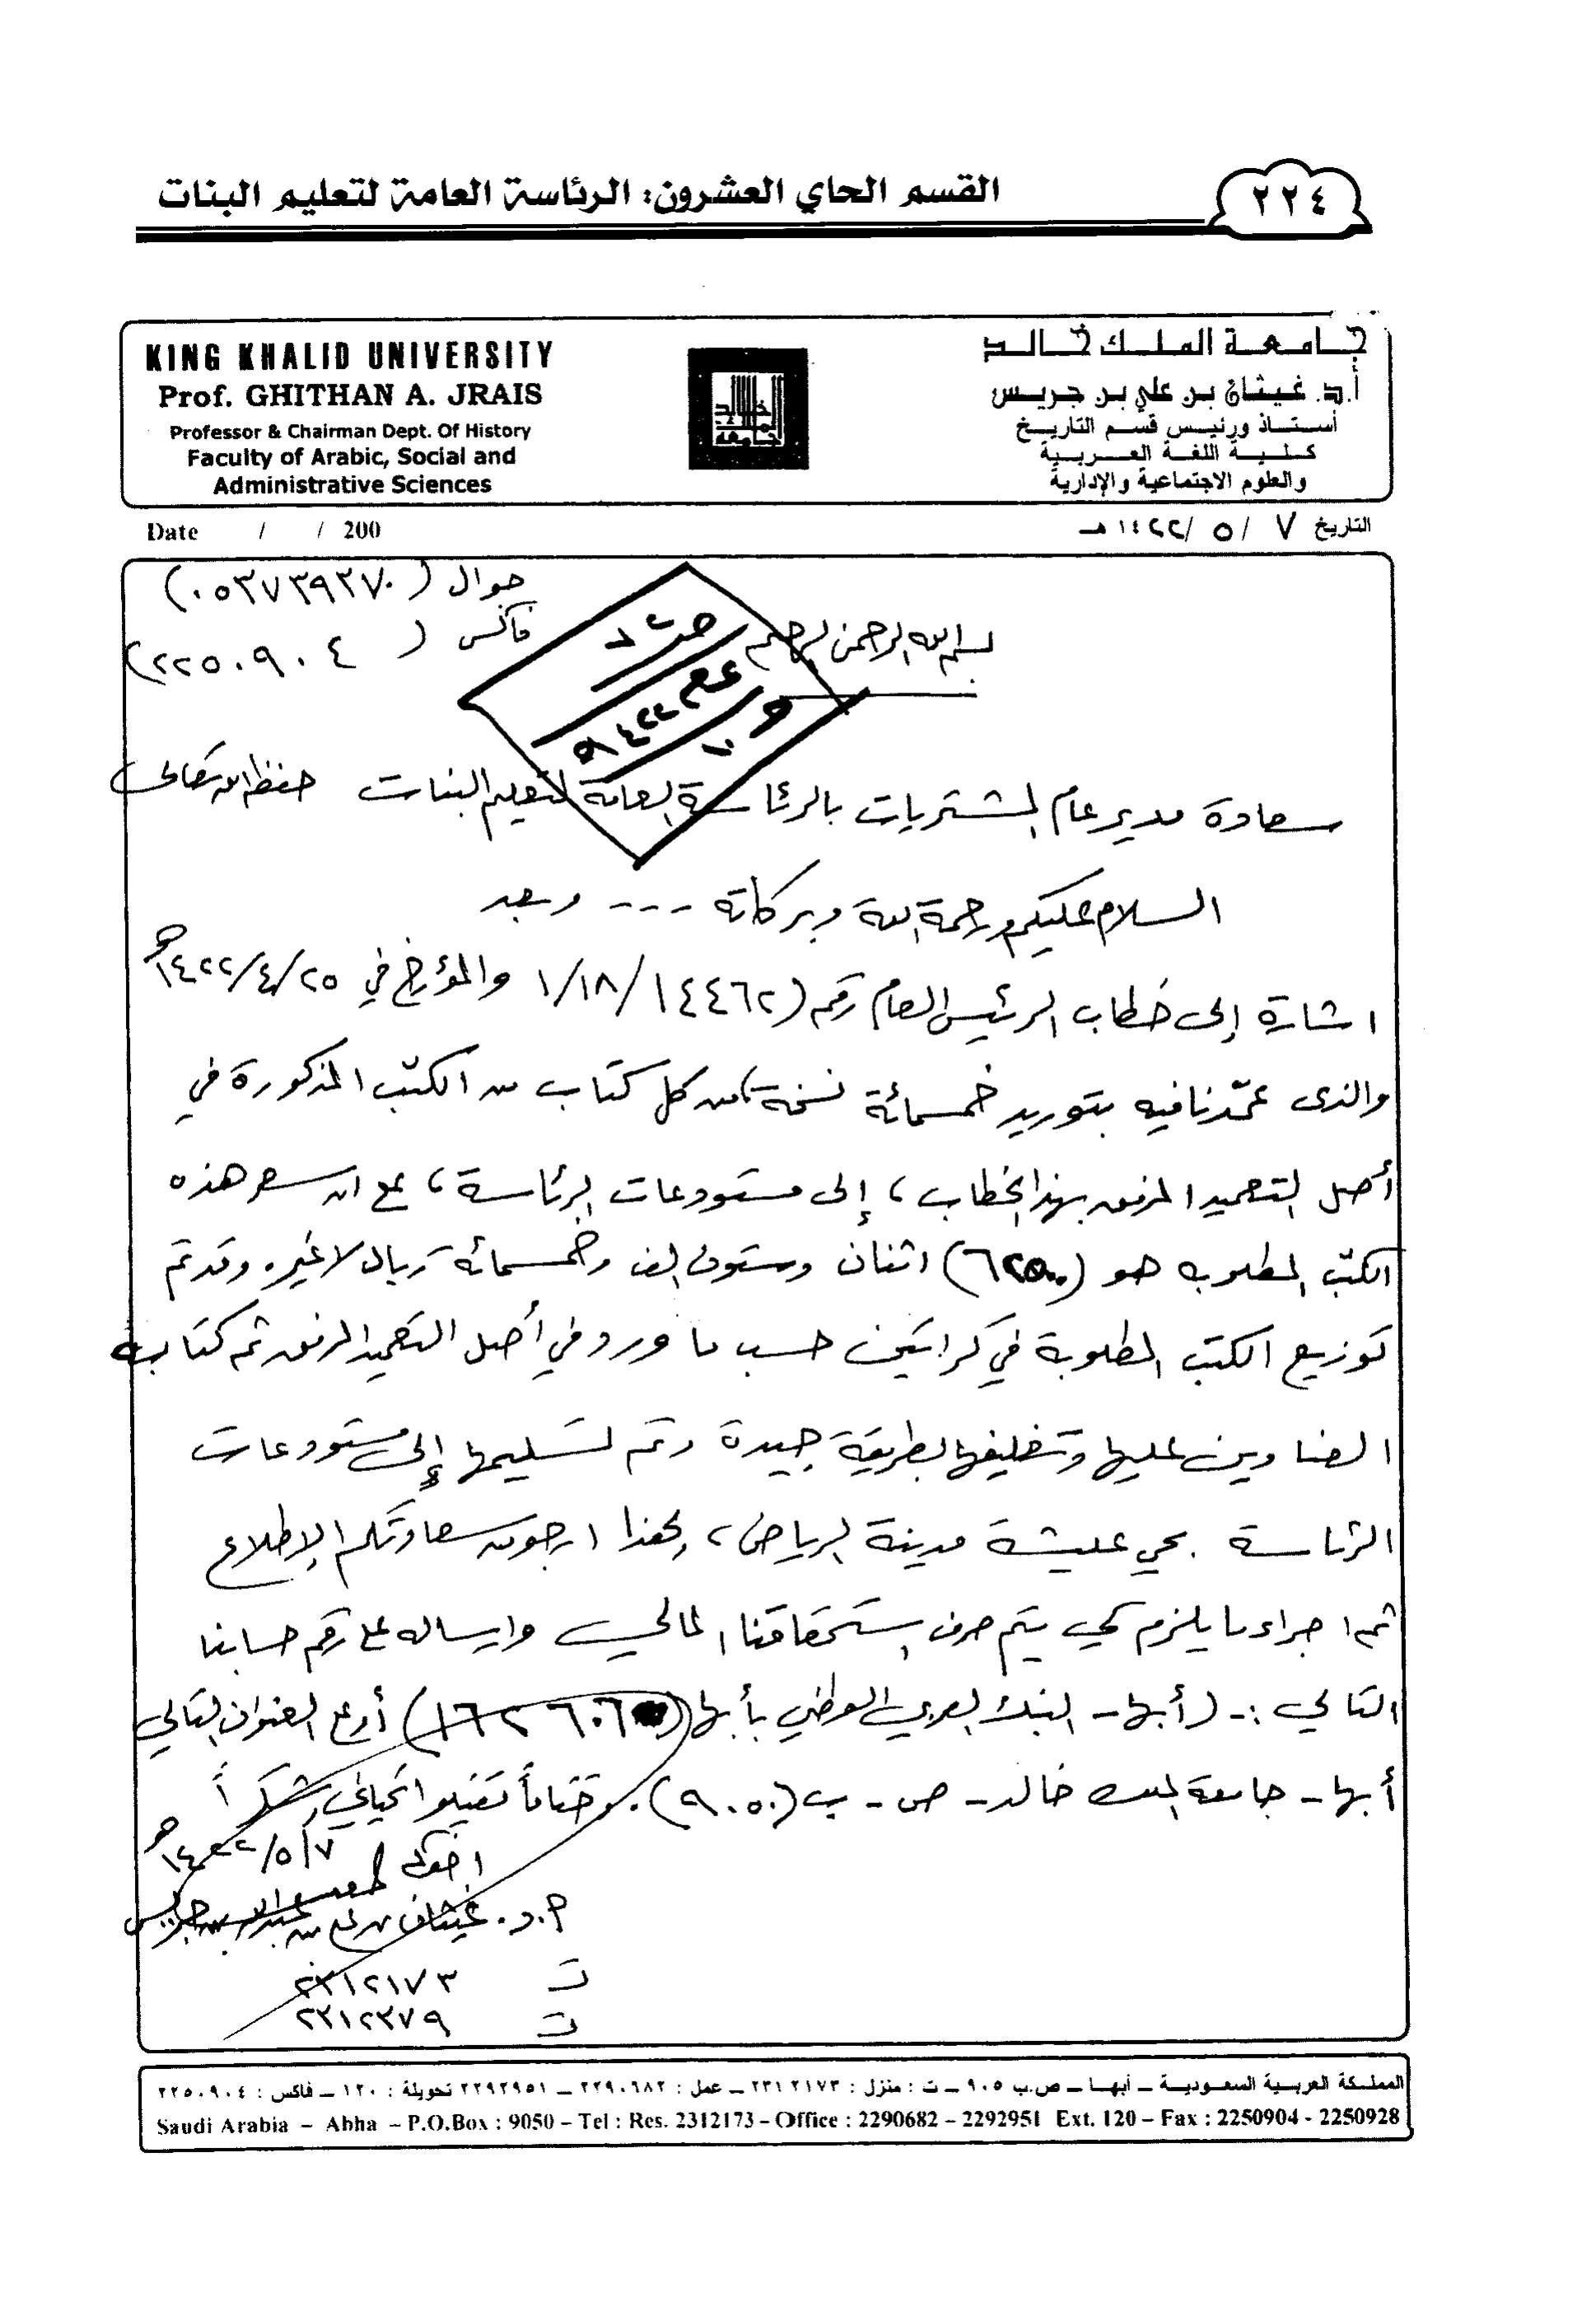 ٢٢٤
القسم الحاي العشرون: الرئاسة العامة لتعليم البنات
KING KHALID UNIVERSITY
Prof. GHITHAN A. JRAIS
Professor & Chairman Dept. Of History
Faculty of Arabic, Social and
Administrative Sciences
جامعة الملك خالد
أ.د. غيثان بن علي بن جريس
أستاذ ورئيس قسم التاريخ
كلية اللغة العربية
والعلوم الاجتماعية والإدارية
Date / / 200
التاريخ ٧ / ٥ / ١٤٢٢ هـ
جوال (٠٥٣٧٣٩٣٧٠)
فاكس (٢٢٥٠٩٠٤)
بسم الله الرحمن الرحيم
سعادة مدير عام المشتريات بالرئاسة العامة لتعليم البنات حفظه الله تعالى
السلام عليكم ورحمة الله وبركاته --- وبعد
اشارة إلى خطاب الرئيس العام رقم (١/١٨/١٤٤٦٢ والمؤرخ في ١٤٢٢/٤/٢٥هـ
والذى عمّدنا فيه بتوريد خمسمائة نسخة، من كل كتاب من الكتب المذكورة في
أصل التعميد المرفق بهذا الخطاب، إلى مستودعات الرئاسة، مع ان سعر هذه
الكتب المطلوبه هو (٦٢٥٠٠) اثنان وستون الف وخمسمائة ريال لا غير. وقد تم
توزيع الكتب المطلوبة في كراتين حسب ما ورد في أصل التعميد المرفق ثم كتابة
العناوين عليها وتغليفها بطريقة جيدة وتم تسليمها إلى مستودعات
الرئاسة بحي عليشة مدينة الرياض، لهذا ارجو من سعادتكم الإطلاع
ثم اجراء ما يلزم كي يتم صرف استحقاقنا المالي وارساله على رقم حسابنا
التالي :- (أبها - البنك العربي الوطني بأبها ( أو على العنوان التالي
أبها - جامعة الملك خالد - ص - ب (٩٠٥٠). وختاماً تقبلوا تحياتي وشكراً
١٤٢٢/٥/٧هـ
اخوكم
أ.د. غيثان بن علي بن جريس
ت ٢٣١٢١٧٣
ت ٢٣١٢٣٧٩
المملكة العربية السعودية – أبها – ص.ب ٩٠٥ – ت : منزل : ٢٣١٢١٧٣ – عمل : ٢٢٩٠٦٨٢ – ٢٢٩٢٩٥١ تحويلة : ١٢٠ – فاكس : ٢٢٥٠٩٠٤
Saudi Arabia – Abha – P.O.Box : 9050 – Tel : Res. 2312173 – Office : 2290682 – 2292951 Ext. 120 – Fax : 2250904 - 2250928